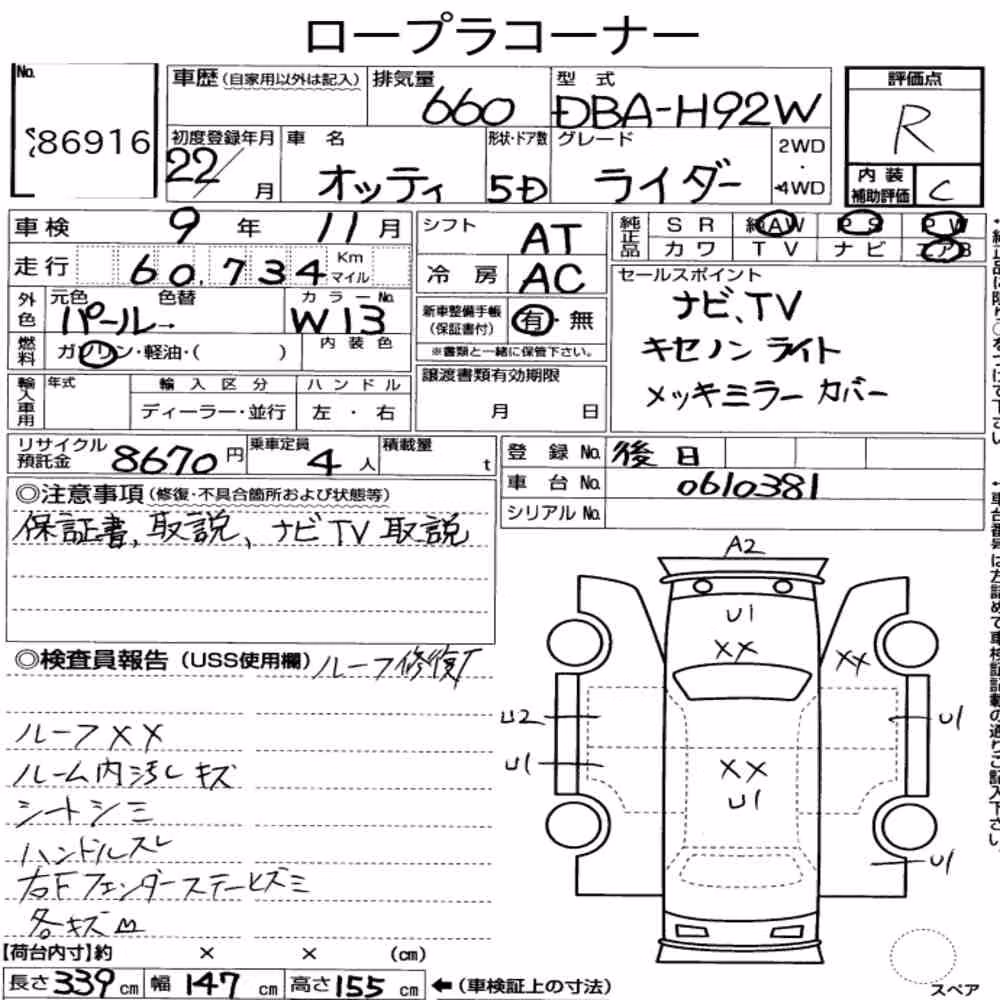 ロープラコーナー
No. 86916
車歴(自家用以外は記入) 排気量 660 型式 DBA-H92W 評価点 R
初度登録年月 22/ 月 車名 オッティ 形状・ドア数 5D グレード ライダー 2WD・4WD 内装補助評価 C
車検 9年 11月
走行 60,734 Km マイル
外色 元色 パール→ 色替 カラーNo. W13
燃料 ガソリン・軽油・( ) 内装色
輸入車用 年式 輸入区分 ディーラー・並行 ハンドル 左・右
シフト AT
冷房 AC
新車整備手帳(保証書付) 有・無
※書類と一緒に保管下さい。
譲渡書類有効期限
月 日
純正品 SR 純AW PS PW
カワ TV ナビ エアB
セールスポイント
ナビ、TV
キセノン ライト
メッキミラー カバー
リサイクル預託金 8670円 乗車定員 4人 積載量 t
登録No. 後日
車台No. 0610381
シリアルNo.
◎注意事項(修復・不具合箇所および状態等)
保証書、取説、ナビTV取説
◎検査員報告(USS使用欄) ルーフ修復歴
ルーフ××
ルーム内汚レキズ
シートシミ
ハンドルスレ
右Fフェンダーステーヒズミ
各キズ凹
A2
U1
××
××
U2
U1
U1
××
U1
U1
スペア
【荷台内寸】約 × × (cm)
長さ339cm 幅147cm 高さ155cm ←(車検証上の寸法)